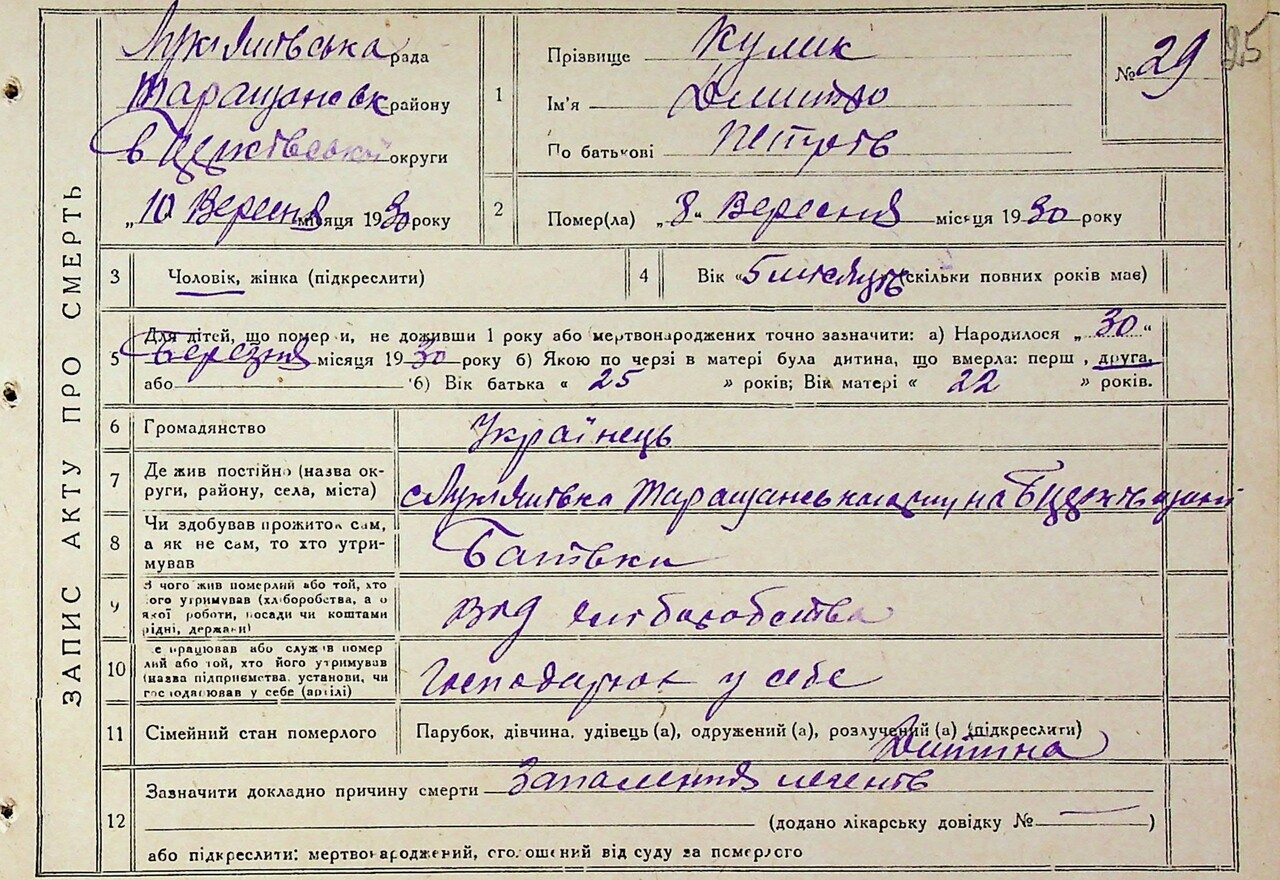 ЗАПИС АКТУ ПРО СМЕРТЬ
Лук'янівська рада
Таращанськ району
Б Церківської округи
„10 Вересня місяця 1930 року
1
Прізвище Кулик
Ім'я Дмитро
По батькові Петров
№ 29
25
2
Помер(ла) „8" Вересня місяця 1930 року
3 Чоловік, жінка (підкреслити)
4 Вік « 5 місяців (скільки повних років має)
Для дітей, що померли, не доживши 1 року або мертвонароджених точно зазначити: а) Народилося „ 30 "
5 Березня місяця 1930 року б) Якою по черзі в матері була дитина, що вмерла: перш , друга,
або б) Вік батька « 25 » років; Вік матері « 22 » років.
6 Громадянство Українець
7 Де жив постійно (назва ок-
руги, району, села, міста)
с Лук'янівка Таращанського району на Б Церківщині
8 Чи здобував прожиток сам,
а як не сам, то хто утри-
мував
Батьки
9 З чого жив померлий або той, хто
його утримував (хліборобства, або
якої роботи, посади чи коштами
рідні, держави)
Від хліборобства
10 Де працював або служив помер
лий або той, хто його утримував
(назва підприємства, установи, чи
господарював у себе (артілі)
Господарює у себе
11 Сімейний стан померлого
Парубок, дівчина, удівець (а), одружений (а), розлучений (а) (підкреслити)
Дитина
12 Зазначити докладно причину смерти Запалення легенів
(додано лікарську довідку № —)
або підкреслити: мертвонароджений, оголошений від суду за померлого